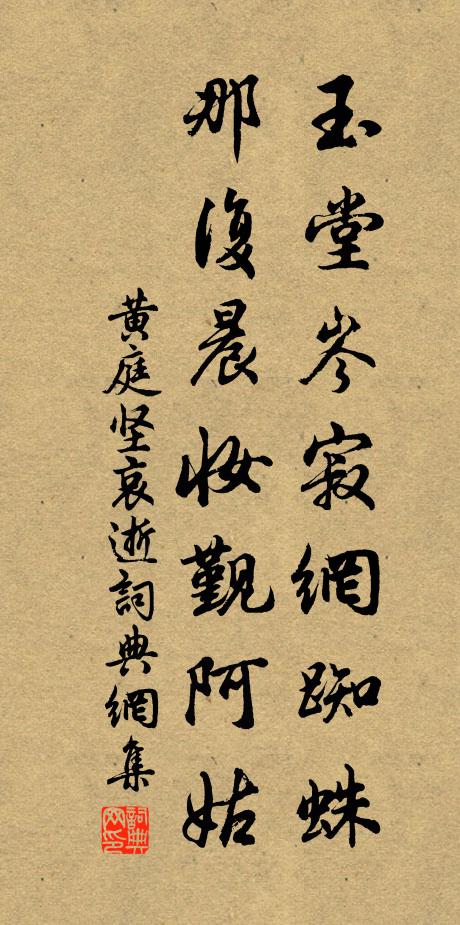 玉堂岑寂網踟蛛
那復晨妝覲阿姑
黄庭坚哀逝詞典網集
詞典网印